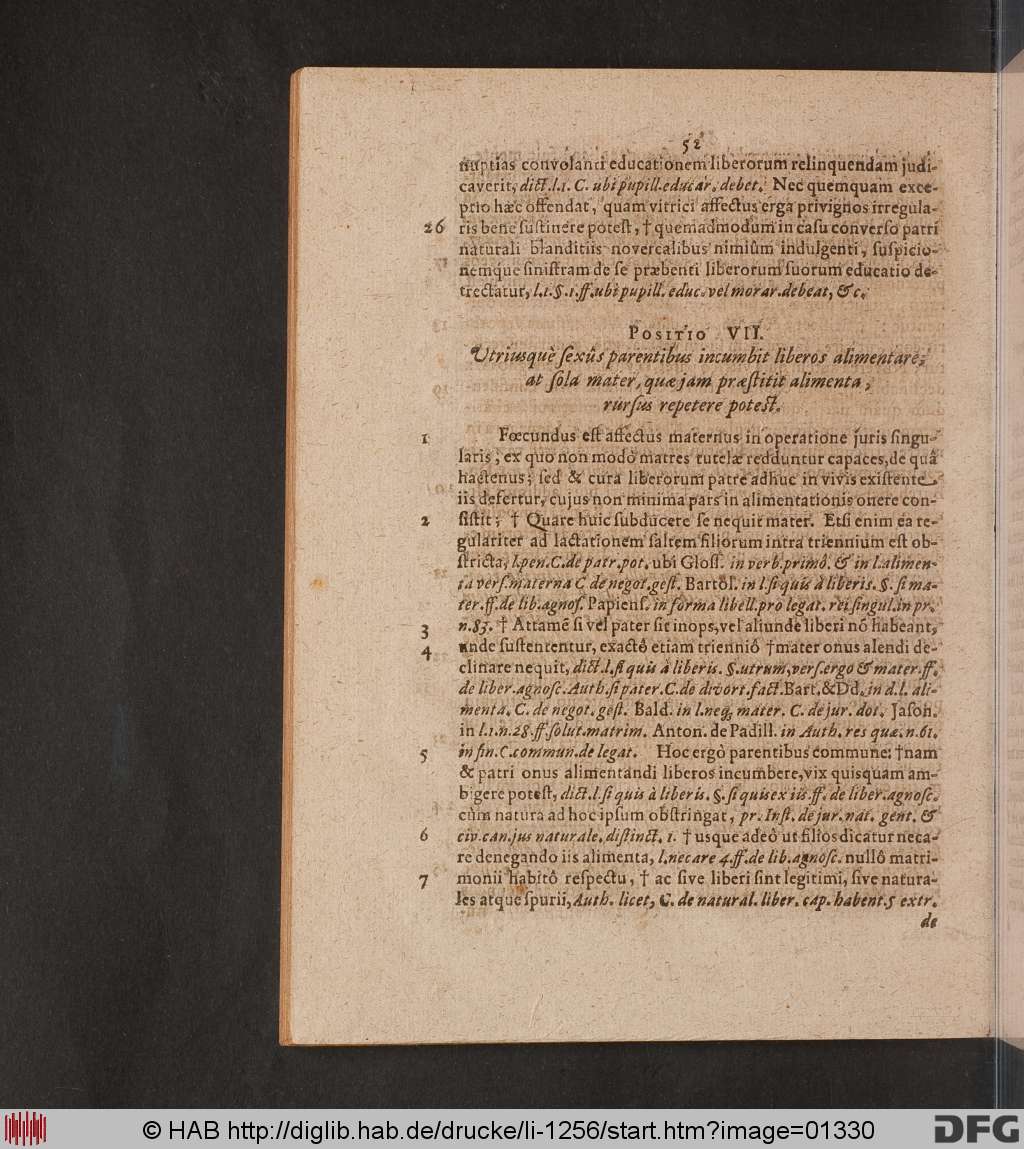 52
nuptias convolanti educationem liberorum relinquendam judi-
caverit, dict.l.1. C. ubi pupill.educar.debet. Nec quemquam exce-
ptio hæc offendat, quam vitrici affectus erga privignos irregula-
26 ris bene sustinere potest, † quemadmodum in casu converso patri
naturali blanditiis novercalibus nimiùm indulgenti, suspicio-
nemque sinistram de se præbenti liberorum suorum educatio de-
trectatur, l.1.§.1.ff.ubi pupill. educ. vel morar.debeat, &c.
POSITIO VII.
Utriusquè sexûs parentibus incumbit liberos alimentare;
at sola mater, quæ jam præstitit alimenta,
rursus repetere potest.
1 Fœcundus est affectus maternus in operatione juris singu-
laris; ex quo non modò matres tutelæ redduntur capaces, de quâ
hactenus; sed & cura liberorum patre adhuc in vivis existente
iis defertur, cujus non minima pars in alimentationis onere con-
2 sistit; † Quare huic subducere se nequit mater. Etsi enim ea re-
gulariter ad lactationem saltem filiorum intra triennium est ob-
stricta, l.pen.C.de patr.pot. ubi Gloss. in verb.primô. & in l.alimen-
ta vers.materna C de negot.gest. Bartol. in l.si quis à liberis. §. si ma-
ter.ff.de lib.agnos. Papiens. in forma libell.pro legat. rei singul.in pr.
3 n.83. † Attamẽ si vel pater sit inops, vel aliunde liberi nõ habeant,
4 unde sustententur, exactô etiam trienniô † mater onus alendi de-
clinare nequit, dict.l.si quis à liberis. §.utrum, vers.ergo & mater.ff.
de liber.agnosc.Auth.si pater.C.de divort.fact.Bart.&Dd.in d.l. ali-
menta. C. de negot. gest. Bald. in l.neq; mater. C. de jur. dot. Jason.
in l.1.n.28.ff.solut.matrim. Anton. de Padill. in Auth. res quæ.n.61.
5 in fin.C.commun.de legat. Hoc ergò parentibus commune: † nam
& patri onus alimentandi liberos incumbere, vix quisquam am-
bigere potest, dict.l.si quis à liberis. §.si quis ex iis.ff.de liber.agnosc.
cùm natura ad hoc ipsum obstringat, pr. Inst. de jur. nat. gent. &
6 civ.can.jus naturale. distinct. 1. † usque adeô ut filios dicatur neca-
re denegando iis alimenta, l.necare 4.ff.de lib.agnosc. nullô matri-
7 monii habitô respectu, † ac sive liberi sint legitimi, sive natura-
les atque spurii, Auth. licet, C. de natural. liber. cap. habent.5 extr.
de
© HAB http://diglib.hab.de/drucke/li-1256/start.htm?image=01330
DFG